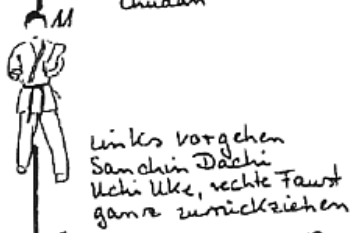 Chudan
M
links vorgehen
Sanchin Dachi
Uchi Uke, rechte Faust
ganz zurückziehen